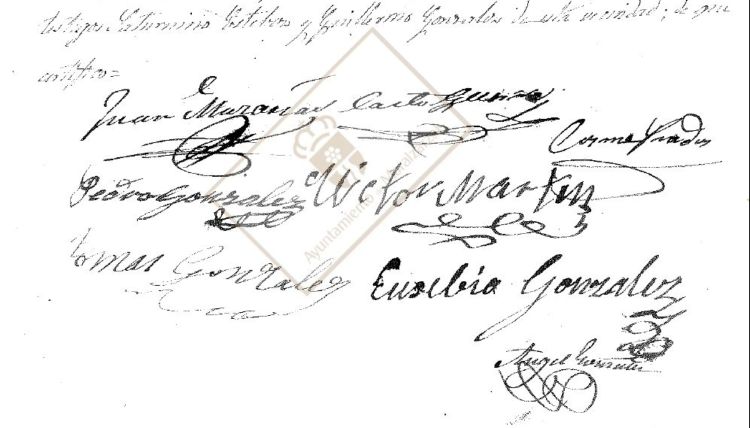 testigos Saturnino Estibes y Guillermo Gonzales de esta vecindad; de que
certifico=
Juan Muzarias Casto Guerra
Cosme Prados
Pedro Gonzalez Victor Martin
tomas Gonzalez
Eusebio Gonzalez
Angel Gonzalez
Ayuntamiento